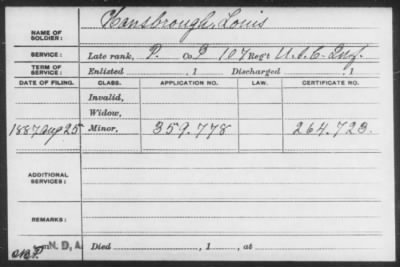 NAME OF SOLDIER: Hansbrough, Louis
SERVICE: Late rank, P. Co. I 107 Reg't U.S.C. Inf.
TERM OF SERVICE: Enlisted , 1 Discharged , 1
DATE OF FILING. CLASS. APPLICATION NO. LAW. CERTIFICATE NO.
Invalid,
Widow,
1887 Aug 25 Minor, 359.778 264.723.
ADDITIONAL SERVICES:
REMARKS:
N. D. A. Died , 1 , at